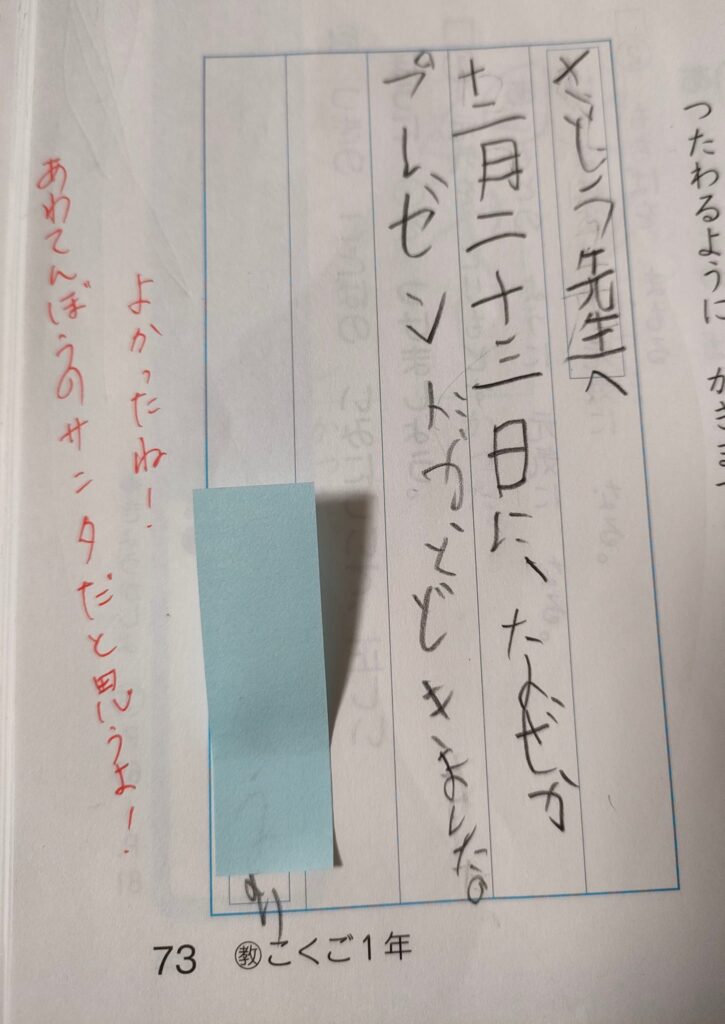 つたわるように　かきま
さとう先生へ
十二月二十三日に、なぜか
プレゼントが、とどきました。
より
よかったね！
あわてんぼうのサンタだと思うよー！
73 ㊙教こくご1年